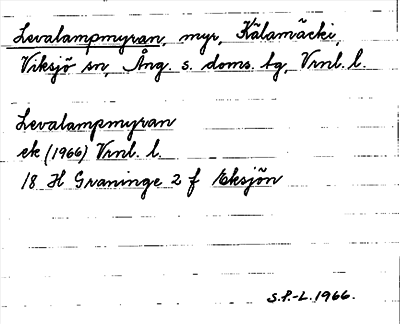 Levalampmyran, myr, Kälamäcki,
Viksjö sn, Ång. s. doms. tg, Vrnl. l.
Levalampmyran
ek (1966) Vrnl. l.
18 H Graninge 2 f Eksjön
S.P.-L. 1966.